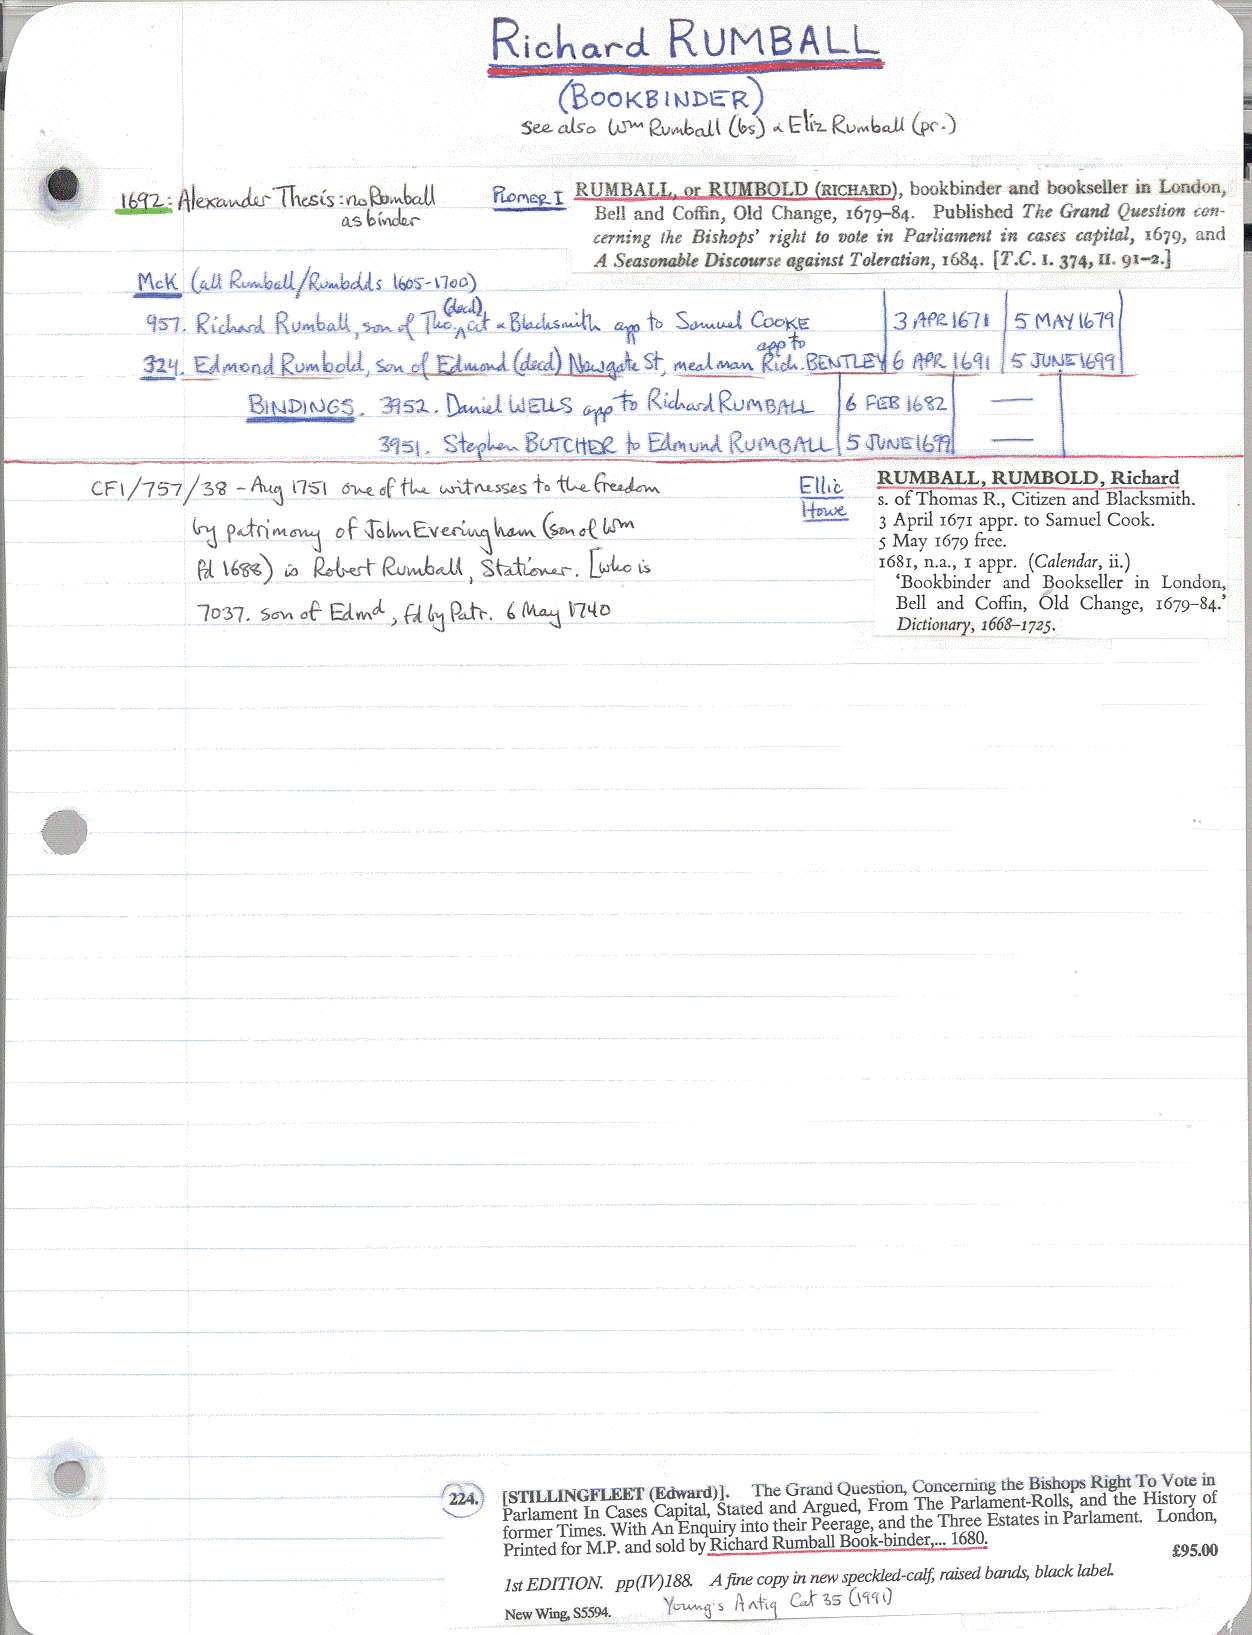 Richard RUMBALL
(BOOKBINDER)
see also Wm Rumball (bs) & Eliz Rumball (pr.)
1692: Alexander Thesis: no Rumball
as binder
PLOMER I
RUMBALL, or RUMBOLD (RICHARD), bookbinder and bookseller in London,
Bell and Coffin, Old Change, 1679–84. Published The Grand Question con-
cerning the Bishops' right to vote in Parliament in cases capital, 1679, and
A Seasonable Discourse against Toleration, 1684. [T.C. I. 374, II. 91–2.]
McK (all Rumball/Rumbolds 1605-1700)
(decd)
957. Richard Rumball, son of Tho, cit & Blacksmith app to Samuel COOKE 3 APR 1671 5 MAY 1679
app to
324. Edmond Rumbold, son of Edmond (decd) Newgate St, mealman Rich. BENTLEY 6 APR 1691 5 JUNE 1699
BINDINGS. 3952. Daniel WELLS app to Richard RUMBALL 6 FEB 1682 —
3951. Stephen BUTCHER to Edmund RUMBALL 5 JUNE 1699 —
CF1/757/38 - Aug 1751 one of the witnesses to the freedom
by patrimony of John Everingham (son of Wm
fd 1688) is Robert Rumball, Stationer. [who is
7037. son of Edmd, fd by Patr. 6 May 1740
Ellic
Howe
RUMBALL, RUMBOLD, Richard
s. of Thomas R., Citizen and Blacksmith.
3 April 1671 appr. to Samuel Cook.
5 May 1679 free.
1681, n.a., 1 appr. (Calendar, ii.)
'Bookbinder and Bookseller in London,
Bell and Coffin, Old Change, 1679–84.'
Dictionary, 1668–1725.
224. [STILLINGFLEET (Edward)]. The Grand Question, Concerning the Bishops Right To Vote in
Parlament In Cases Capital, Stated and Argued, From The Parlament-Rolls, and the History of
former Times. With An Enquiry into their Peerage, and the Three Estates in Parlament. London,
Printed for M.P. and sold by Richard Rumball Book-binder,... 1680.
£95.00
1st EDITION. pp(IV)188. A fine copy in new speckled-calf, raised bands, black label.
New Wing, S5594. Young's Antiq Cat 35 (1991)